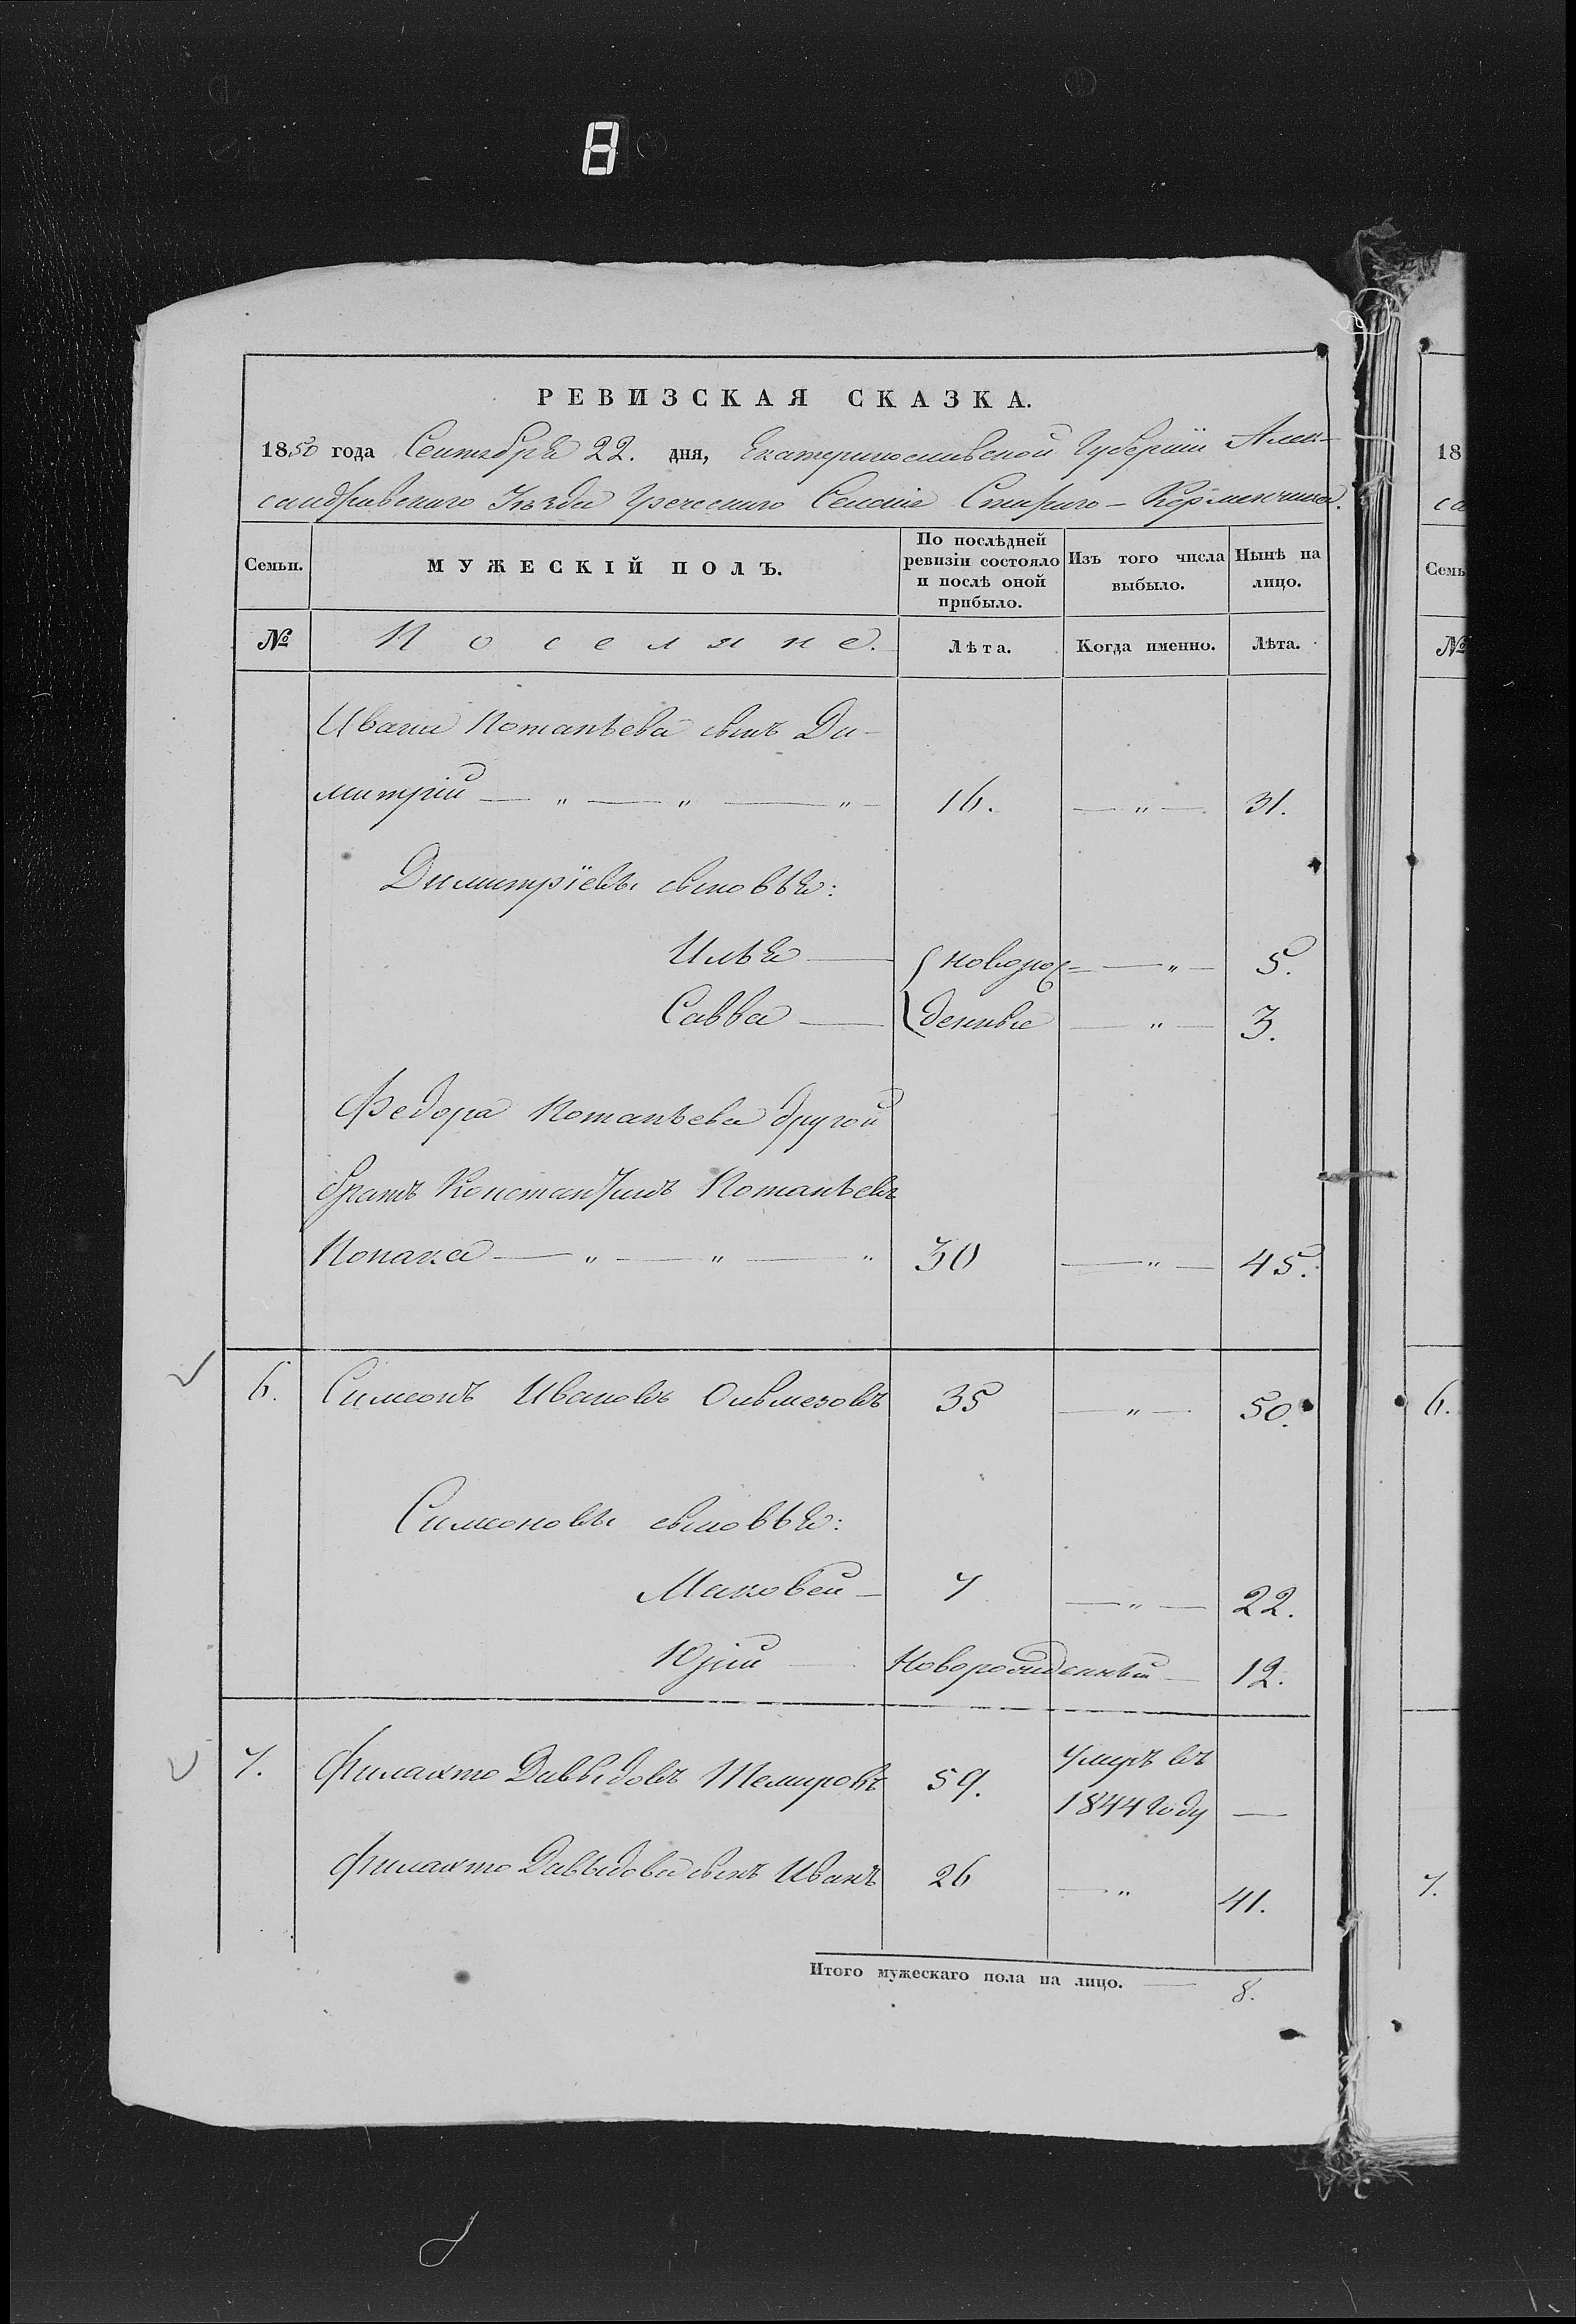 8
РЕВИЗСКАЯ СКАЗКА.
1850 года Сентября 22. дня, Екатеринославской Губернии Алек-
сандровскаго Уезда Греческаго Селенія Стараго-Керменчика.
Семьи. МУЖЕСКІЙ ПОЛЪ. По послѣдней ревизіи состояло и послѣ оной прибыло. Изъ того числа выбыло. Нынѣ на лицо.
№ Поселяне. Лѣта. Когда именно. Лѣта.
Ивана Потапьева сынъ Ди-
митрій — „ — „ — „ — 16. — „ — 31.
Димитріевы сыновья:
Илья — новорож= — „ — 5.
Савва — денные — „ — 3.
Федора Потапьева другой
братъ Константинъ Потапьевъ
Попаза — „ — „ — „ 30 — „ — 45.
6. Симеонъ Ивановъ Олмезовъ 35 — „ — 50.
Симеоновы сыновья:
Маковей — 7 — „ — 22.
Юрій — Новорожденный — 12.
7. Филакто Давыдовъ Темировъ 59. Умеръ въ
1844 году —
Филакто Давыдова сынъ Иванъ 26 — „ 41.
Итого мужескаго пола на лицо. — 8.
18
са
Семь
№
6.
7.